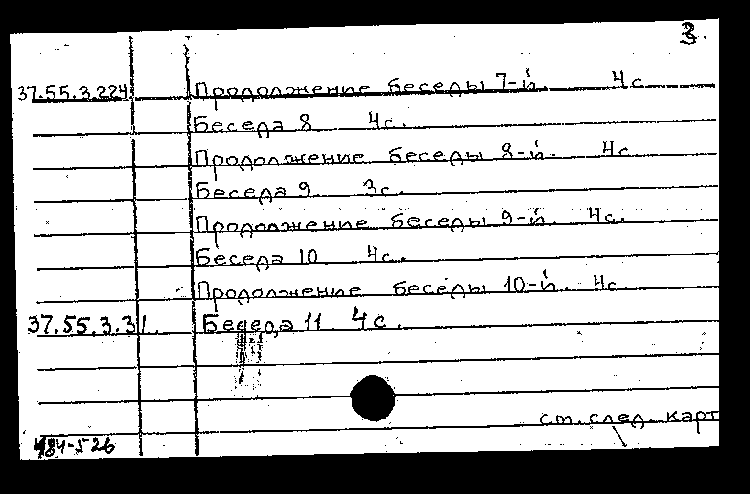 3.
37.55.3.224 Продолжение беседы 7-й. 4с
Беседа 8 4с.
Продолжение беседы 8-й. 4с
Беседа 9 3с.
Продолжение беседы 9-й. 4с.
Беседа 10 4с.
Продолжение беседы 10-й. 4с
37.55.3.31. Беседа 11 4с.
см. след. карт
484-526